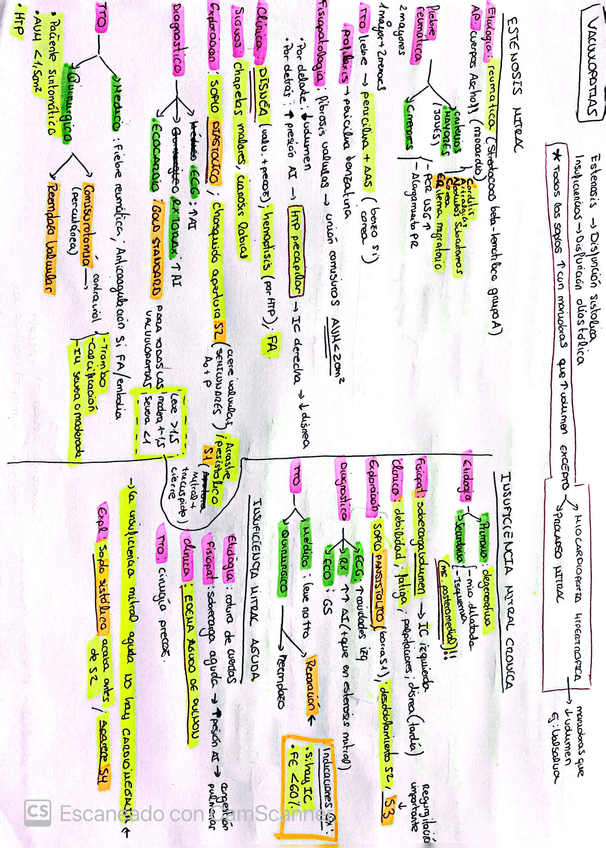 VALVULOPATÍAS
Estenosis → Disfunción sistólica
Insuficiencias → Disfunción diastólica
* Todos los soplos ↑ con maniobras que ↑ volumen EXCEPTO
MIOCARDIOPATÍA HIPERTRÓFICA
PROLAPSO MITRAL
maniobras que
↓ volumen
Ej: Valsalva
ESTENOSIS MITRAL
Etiología: reumática (Streptococo beta-hemolítico grupo A)
AP: cuerpos Aschoff (miocardio)
Fiebre
reumática
2 mayores
1 mayor + 2 menores
criterios
MAYORES
(JONES)
Carditis
Nódulos subcutáneos
Corea
Eritema migratorio
menores
- PCR VSG ↑
- Alargamiento PR
TTO fiebre → penicilina + AAS (benzo si corea)
profilaxis → penicilina benzatina
Fisiopatología: fibrosis valvular → unión comisuras AVM < 2cm²
· Por delante: ↓ volumen
· Por detrás: ↑ presión AI → HTP precapilar → IC derecha → ↓ disnea
Clínica: DISNEA (valv. + precoz); hemoptisis (por HTP); FA
Signos: chapetas malares, cianosis labios
Exploración: SOPLO DIASTÓLICO; chasquido apertura S2 (cierre válvulas
SEMILUNARES
Ao + P)
/ Arrastre
presistólico
S1
mitral +
tricúspide)
cierre
Diagnóstico
ECG: ↑ AI
RX TÓRAX: ↑ AI
ECOCARDIO: GOLD STANDARD PARA TODAS LAS
VALVULOPATÍAS
leve > 1.5
modera 1-1.5
severa < 1
TTO
Médico: Fiebre reumática; Anticoagulación si FA/embolia
Quirúrgico
· Paciente sintomático
· AVM < 1,5cm²
· HTP
Comisurotomía
(percutánea)
contraind
- Trombo
- Calcificación
- IM severa o moderada
Reemplazo valvular
INSUFICIENCIA MITRAL CRÓNICA
Etiología
Primaria: degenerativa
Secundaria
- mio dilatada
- Isquemia
(m. posteromedial)!!
Fisiopat: sobrecarga volumen → IC izquierda
Clínica: debilidad, fatiga, palpitaciones; disnea (tardía)
Exploración: SOPLO PANSISTÓLICO (borra S1), desdoblamiento S2, S3
Regurgitación
importante
Diagnóstico
ECG: ↑ cavidades izq
RX: ↑↑ AI (+ que en estenosis mitral)
ECO: GS
TTO
Médico: leve no tto
Quirúrgico
Reparación
Reemplazo
Indicaciones QX:
· si hay IC
· FE < 60%
INSUFICIENCIA MITRAL AGUDA
Etiología: rotura de cuerdas
Fisiopat: sobrecarga aguda → ↑ presión AI → congestión
pulmonar
Clínica: EDEMA AGUDO DE PULMÓN
TTO: cirugía precoz.
→ La insuficiencia mitral aguda NO hay CARDIOMEGALIA ←
Expl: soplo sistólico acaba antes
de S2 / Aparece S4
CS Escaneado con CamScanner